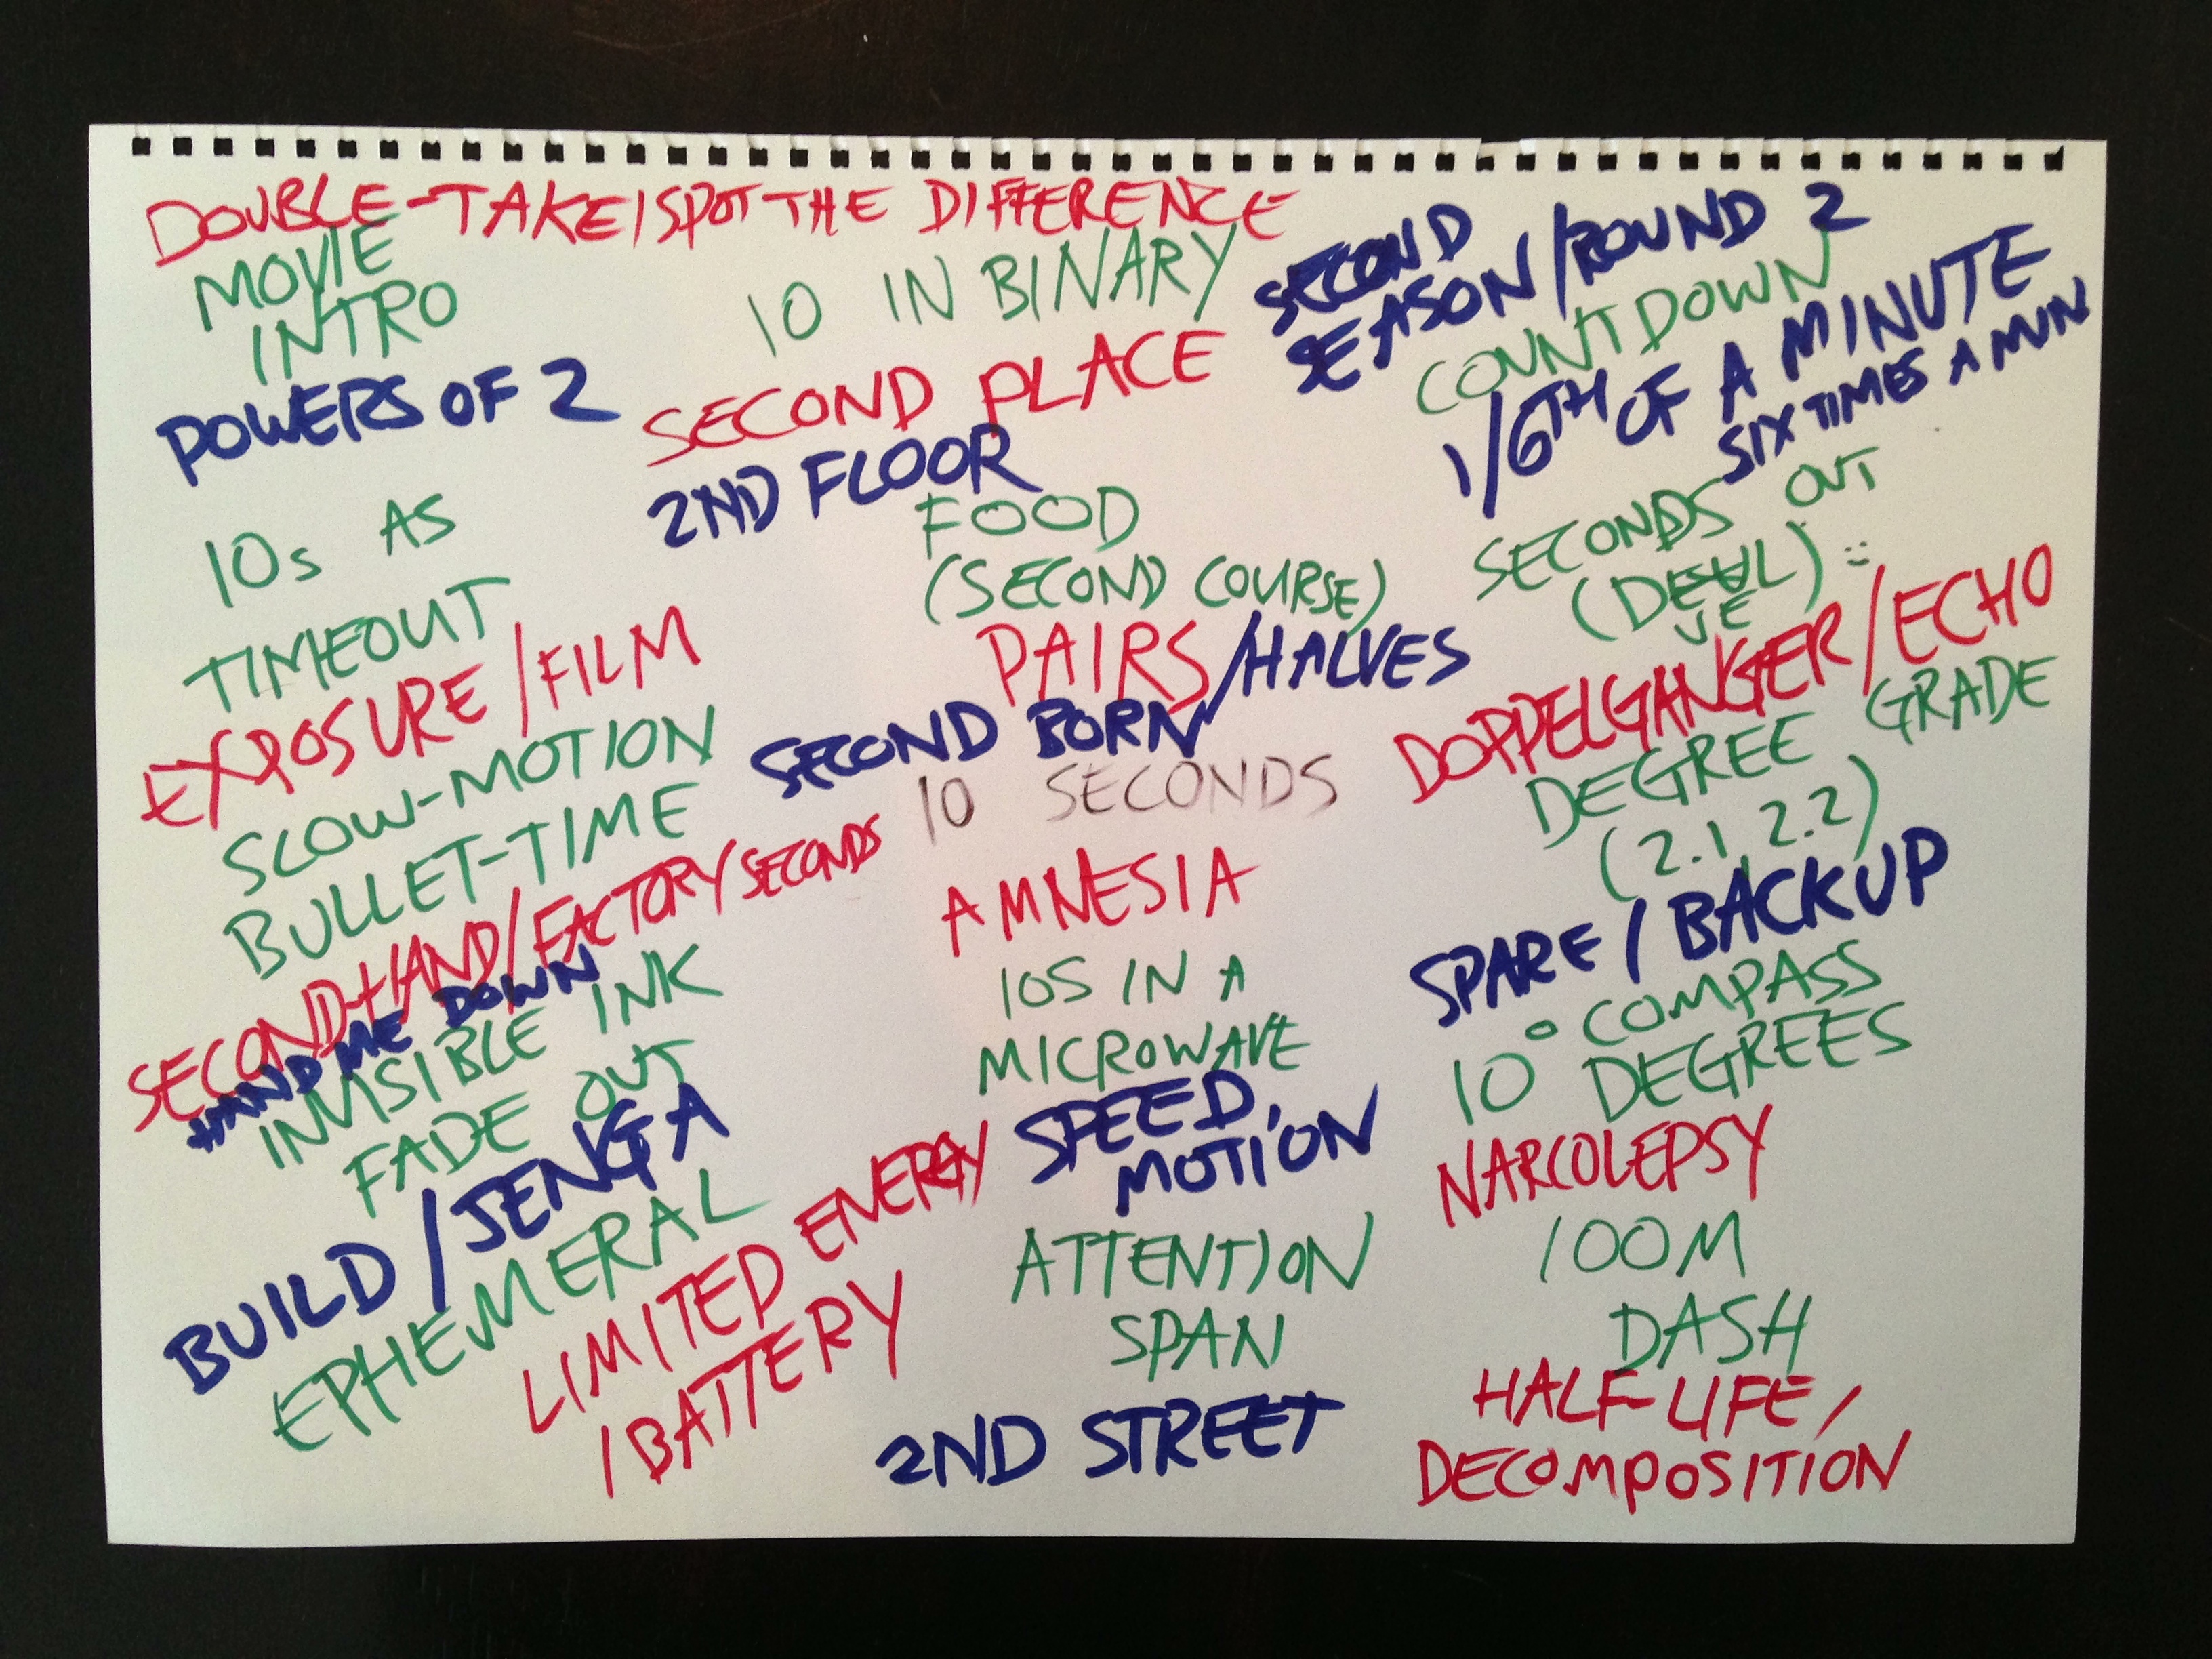 DOUBLE-TAKE/SPOT THE DIFFERENCE
MOVIE
INTRO
POWERS OF 2
10s AS
TIMEOUT
EXPOSURE/FILM
SLOW-MOTION
BULLET-TIME
SECOND-HAND/FACTORY SECONDS
HAND ME DOWN
INVISIBLE INK
FADE OUT
BUILD/JENGA
EPHEMERAL
LIMITED ENERGY
/BATTERY
10 IN BINARY
SECOND PLACE
2ND FLOOR
FOOD
(SECOND COURSE)
PAIRS/HALVES
SECOND BORN
10 SECONDS
AMNESIA
10S IN A
MICROWAVE
SPEED,
MOTION
ATTENTION
SPAN
2ND STREET
SECOND
SEASON/ROUND 2
COUNTDOWN
1/6TH OF A MINUTE
SIX TIMES A MIN
SECONDS OUT
DOPPELGANGER/ECHO
DEGREE GRADE
(2.1, 2.2)
SPARE/BACKUP
10° COMPASS
DEGREES
NARCOLEPSY
100M
DASH
HALF-LIFE/
DECOMPOSITION